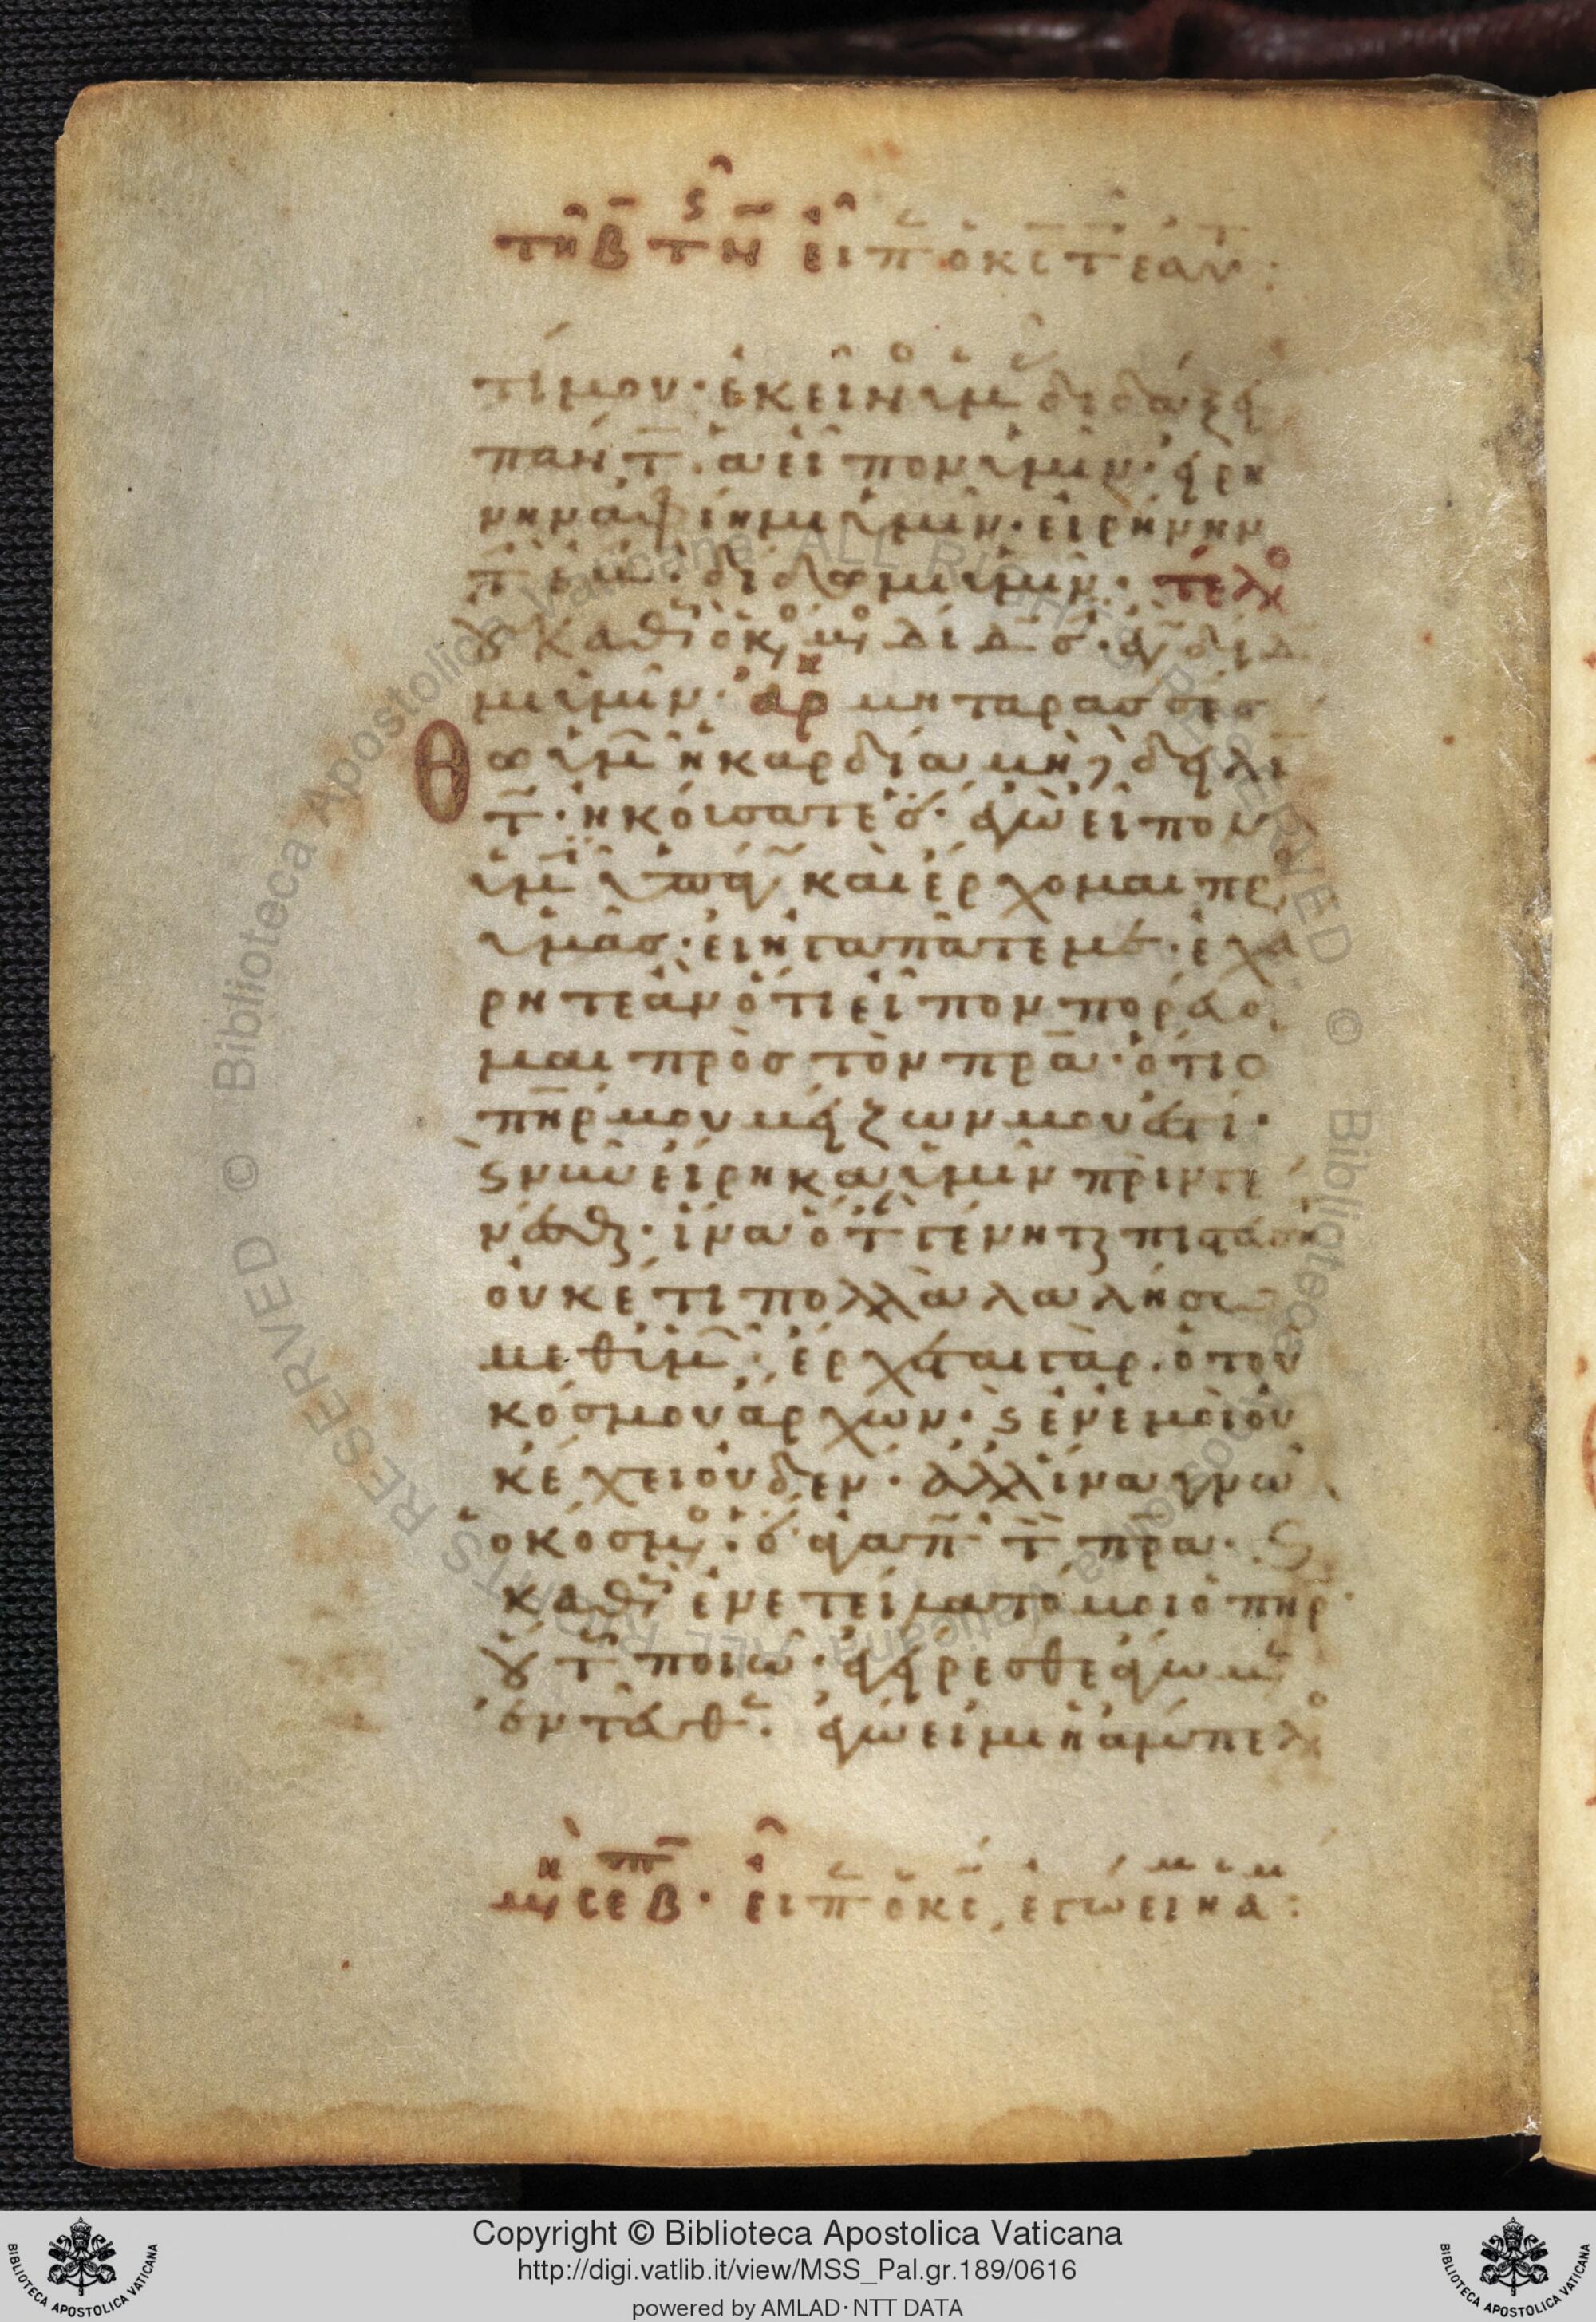 τῆ β τῆς ϛ εἶπ ὁ κς τ ε αν :
τί μου· ἐκεῖνος ὑμᾶς διδάξει
πάντ ἃ εἶπον ὑμῖν· εἰρή
νην ἀφίημι ὑμῖν· εἰρήνην
τ ἐμὴν δίδωμι ὑμῖν· τέλος
οὐ καθὼς ὁ κόσμος δίδωσ· ἐγὼ δίδω
μι ὑμῖν· ἀρχ μὴ ταρασσέσ
θω ὑμῶν ἡ καρδία μηδὲ δειλιά
τ· ἠκούσατε ὅτι ἐγὼ εἶπον
ὑμῖν ὑπάγω καὶ ἔρχομαι πρὸς
ὑμᾶς· εἰ ἠγαπᾶτέ με· ἐχά
ρητε ἂν ὅτι εἶπον πορεύο
μαι πρὸς τὸν πρα· ὅτι ὁ
πηρ μου μείζων μου ἐστί·
ϛ νῦν εἴρηκα ὑμῖν πρὶν γε
νέσθαι· ἵνα ὅταν γένηται πιστεύση
οὐκέτι πολλὰ λαλήσω
μεθ ὑμῶν· ἔρχεται γὰρ ὁ του
κόσμου ἄρχων· ϛ ἐν ἐμοὶ οὐ
κ ἔχει οὐδέν· ἀλλ ἵνα γνῶ
ὁ κόσμος· ὅτι ἀγαπῶ τὸν πρα· ϛ
καθὼς ἐνετείλατό μοι ὁ πηρ·
οὕτως ποιῶ· ἐγείρεσθε ἄγωμεν
ἐντεῦθεν· ἐγώ εἰμι ἡ ἄμπελος
εἶπ ὁ κς, ἐγώ εἰμ ἡ ἀμ :